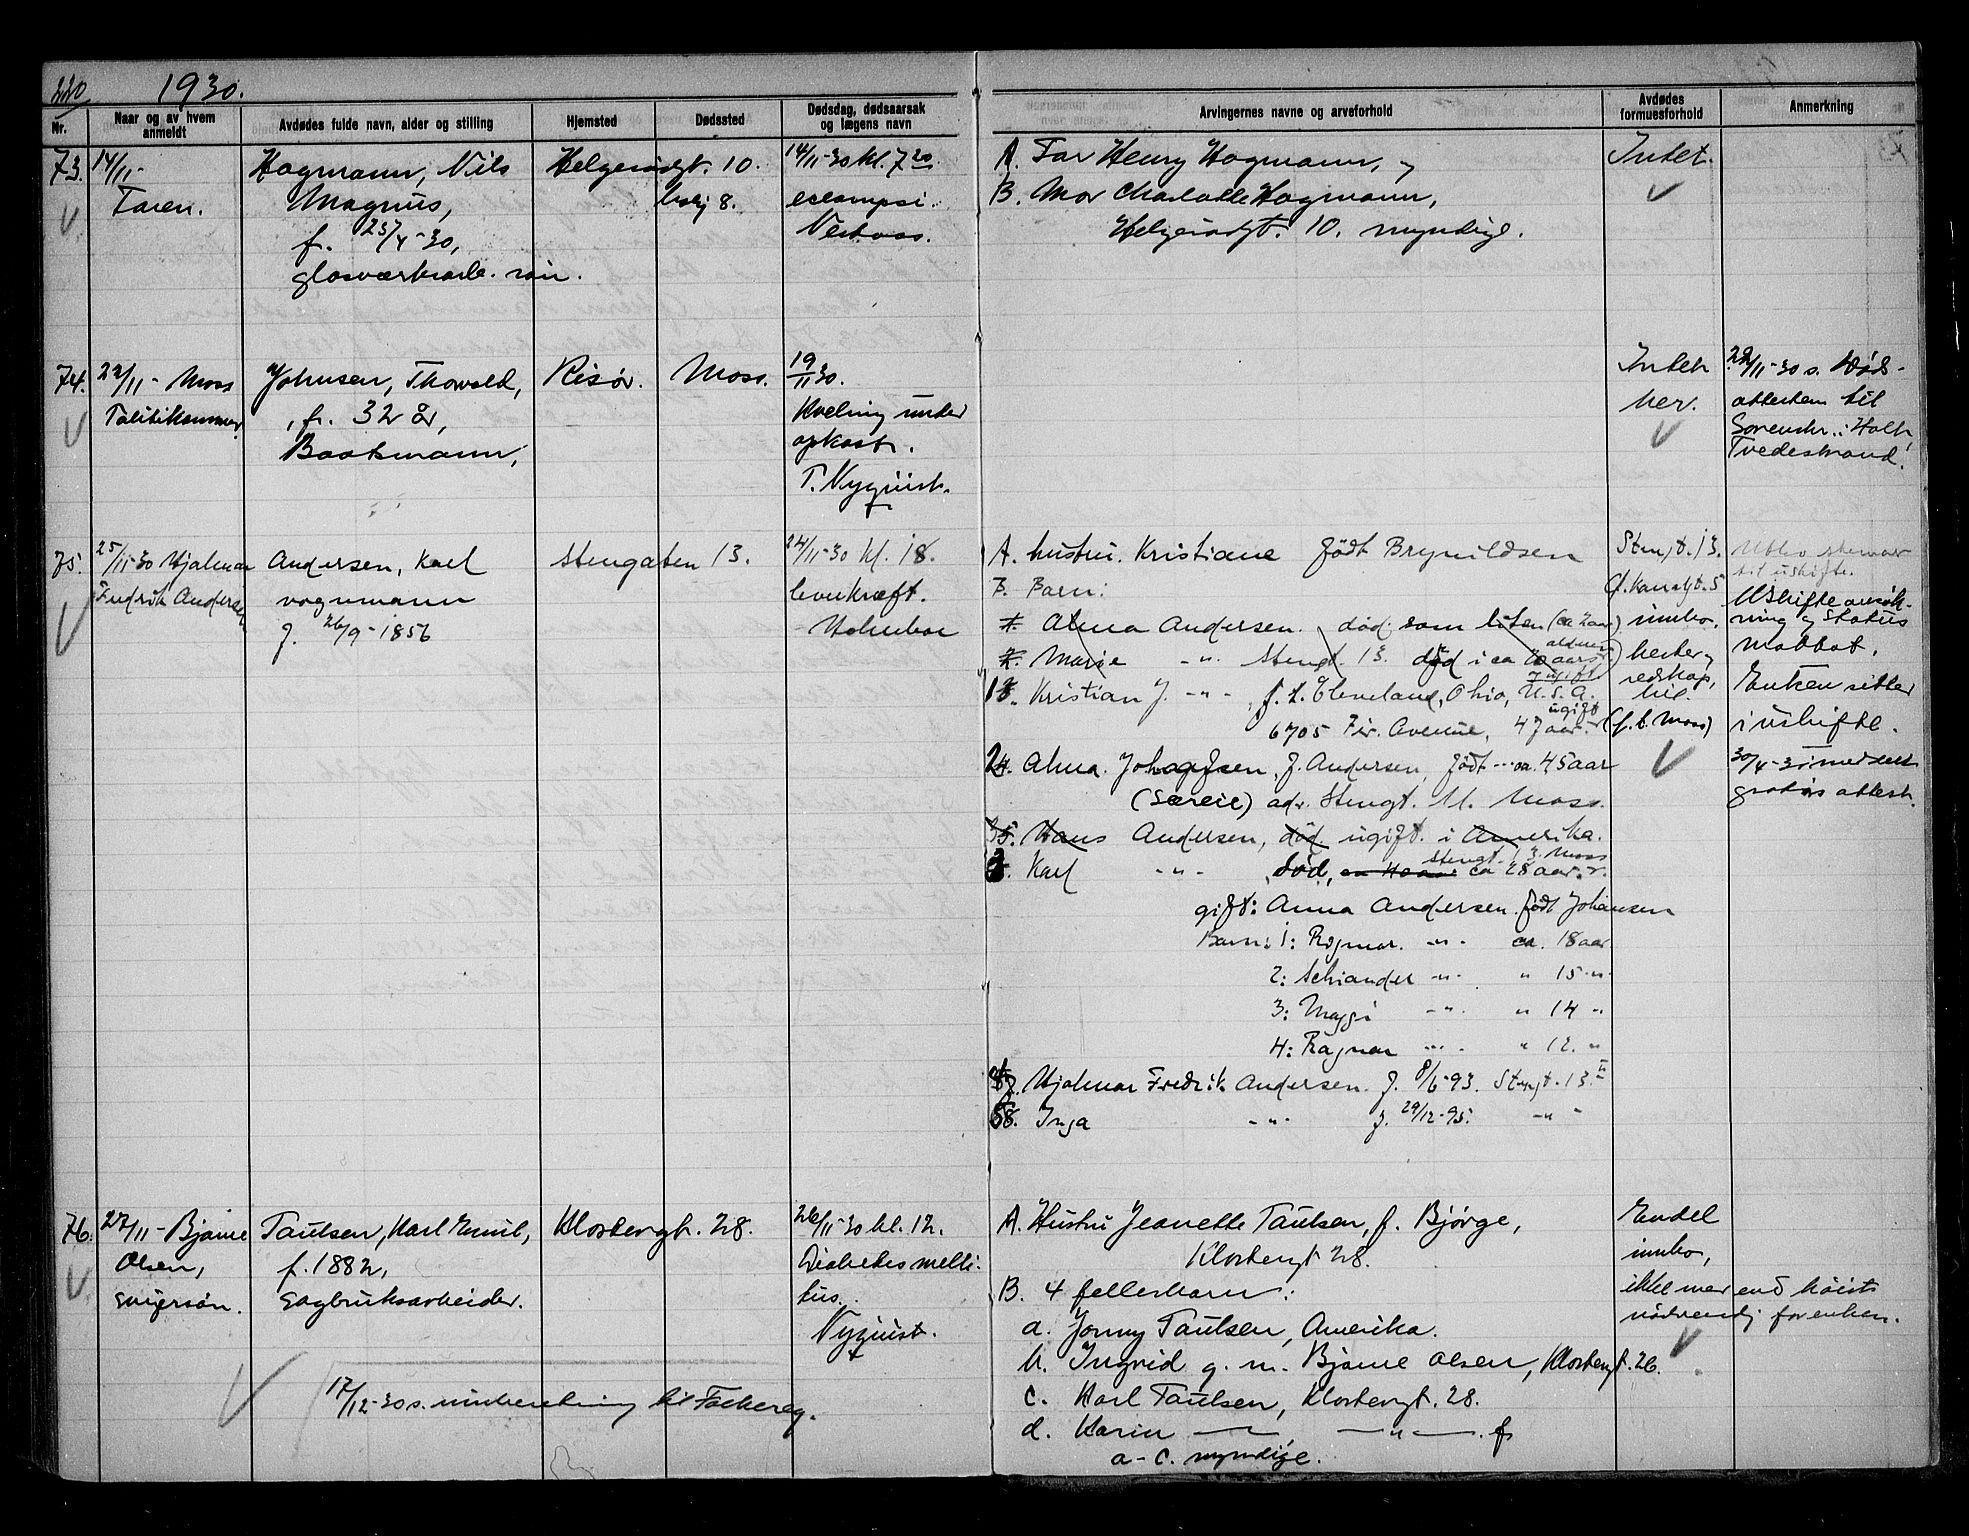 220 1930.
Nr.
Naar og av hvem anmeldt
Avdødes fulde navn, alder og stilling
Hjemsted
Dødssted
Dødsdag, dødsaarsak og lægens navn
Arvingernes navne og arveforhold
Avdødes formuesforhold
Anmerkning
73. 14/11-
Faren.
Hagmann, Nils
Magnus,
f. 23/4-30,
glasværksarb. søn.
Helgerødgt. 10.
14/11-30 kl. 7 20
eclampsi.
A. Far Henry Hagmann, og
B. Mor Charlotte Hagmann,
Helgerødgt. 10. myndige.
Intet.
74. 22/11- Moss
Politikammer
Johnsen, Thorvald,
f. 32 år,
Baatsmann,
Risør.
Moss.
19/11 30.
Kvelning under
opkast.
T. Nyquist.
Intet
her.
22/11-30 s. døds-
attesten til
Sorenskr. i Holt,
Tvedestrand.
75. 25/11-30 Hjalmar
Fredrik Andersen
Andersen, Karl
vognmann
f. 26/9-1856
Stengaten 13.
24/11-30 kl. 18.
leverkræft.
Holmboe
A. hustru. Kristiane født Brynildsen
B. Barn:
1. Alma Andersen. død som liten (ca 2 aar)
2. Marie -"- Stengt. 13. død i ca 20 aars alderen ugift
13. Kristian J. -"- f. t. Cleveland, Ohio, U. S. A.
6705 Fir. Avenue, 47 aar. ugift
24. Alma. Johansen, f. Andersen, født ca. 45 aar
(Særeie) adr. Stengt. 11. Moss.
35. Hans Andersen, død ugift. i Amerika.
3. Karl -"- død, Stengt. 13. Moss ca 28 aar.
gift: Anna Andersen født Johansen
Barn: 1: Ragmar. -"- ca. 18 aar
2: Schiander -"- " 15 -"-
3: Maggi -"- " 14 "
4: Ragnar -"- " 12. "
Hjalmar Fredrik Andersen. f. 8/6-93. Stengt. 13. II
58. Inga -"- f. 29/12-95. -"-
Stengt. 13.
innbo,
hester og
redskap,
bil.
(f. t. Moss)
til uskifte.
Uskifteansøk-
ning og Status
mottat.
Enken sitter
i uskifte.
gratis attest.
76. 27/11- Bjarne
Olsen,
svigersøn.
Paulsen, Karl Emil,
f. 1882,
Sagbruksarbeider.
Klostergt. 28.
26/11-30 kl. 12.
Diabetes melli-
tus.
Nyquist.
A. Hustru Jeanette Paulsen, f. Bjørge,
Klostergt 28.
B. 4 fellesbarn:
a. Jonny Paulsen, Amerika.
b. Ingrid g. m. Bjarne Olsen, Klostergt. 26.
c. Karl Paulsen, Klostergt. 28.
d. Karin
a-c. myndige.
Endel
innbo,
ikke mer end høist
nødvendig for enken.
17/12-30 s. innberetning til